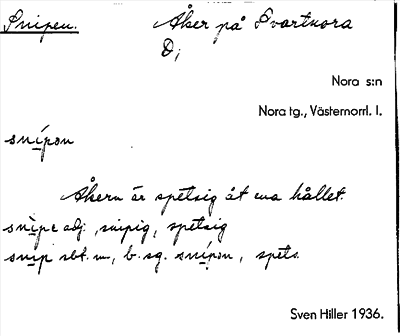 Snipen. Åker på Svartnora
D;
Nora s:n
Nora tg., Västernorrl. l.
snípơn
Åkern är spetsig åt ena hållet.
snìpe adj. snipig, spetsig
snip sbt. m., b. sg. snípơn, spets.
Sven Hiller 1936.